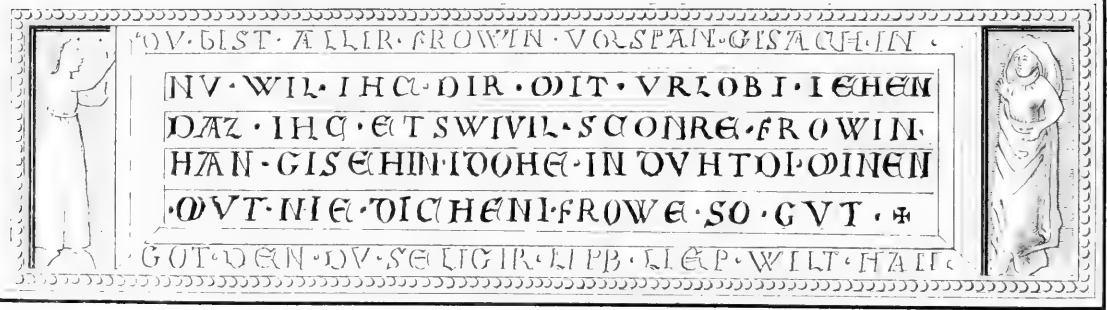 DV · BIST · ALLIR · FROWIN · VORSPAN · GISACH · IN ·
NV · WIL · IHC · DIR · MIT · VRLOBI · IEHEN
DAZ · IHC · ETSWIVIL · SCONRE · FROWIN ·
HAN · GISEHIN · IDOHE · IN DVHT DI · MINEN
· MVT · NIE · DICHENI · FROWE · SO · GVT · ✠
GOT · DEN · DV · SELIGIR · LIPB · LIEP · WILT · HAN ·